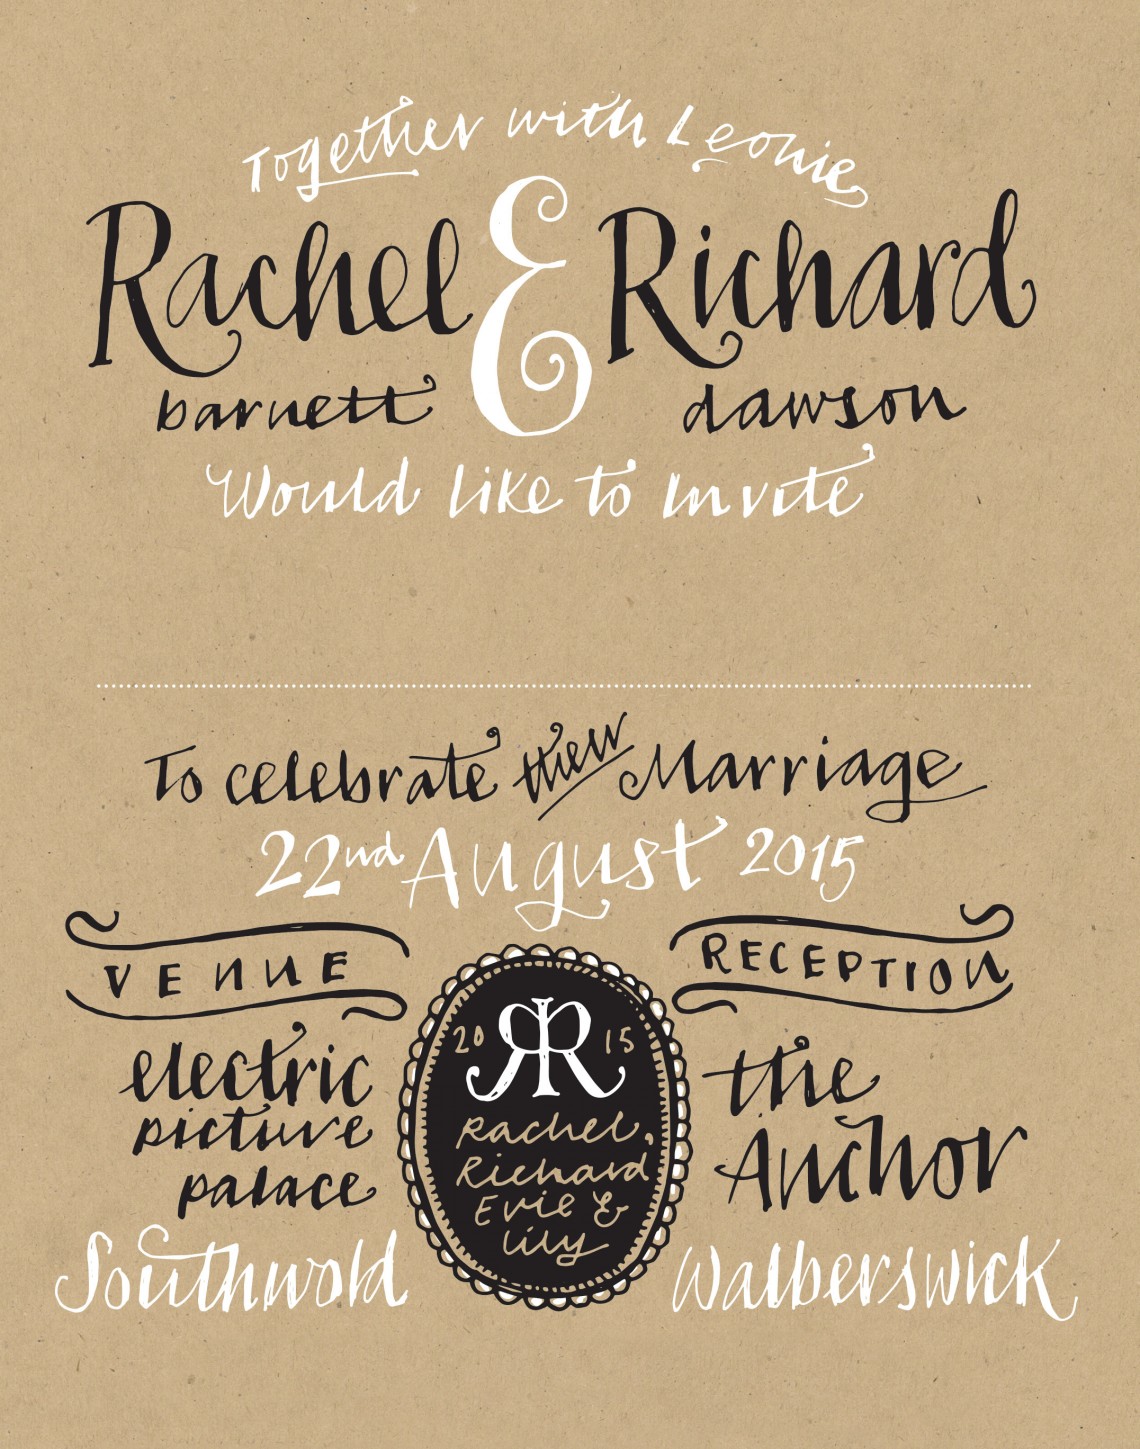 Together with Leonie
Rachel & Richard
barnett dawson
Would like to Invite
To celebrate their Marriage
22nd August 2015
VENUE
electric
picture
palace
Southwold
20 RR 15
Rachel,
Richard
Evie &
Lily
RECEPTION
the
Anchor
Walberswick